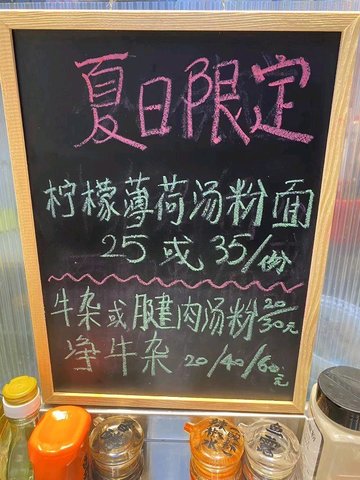 夏日限定
柠檬薄荷汤粉面
25 或 35/份
牛杂或腱肉汤粉 20/30元
净牛杂 20/40/60元